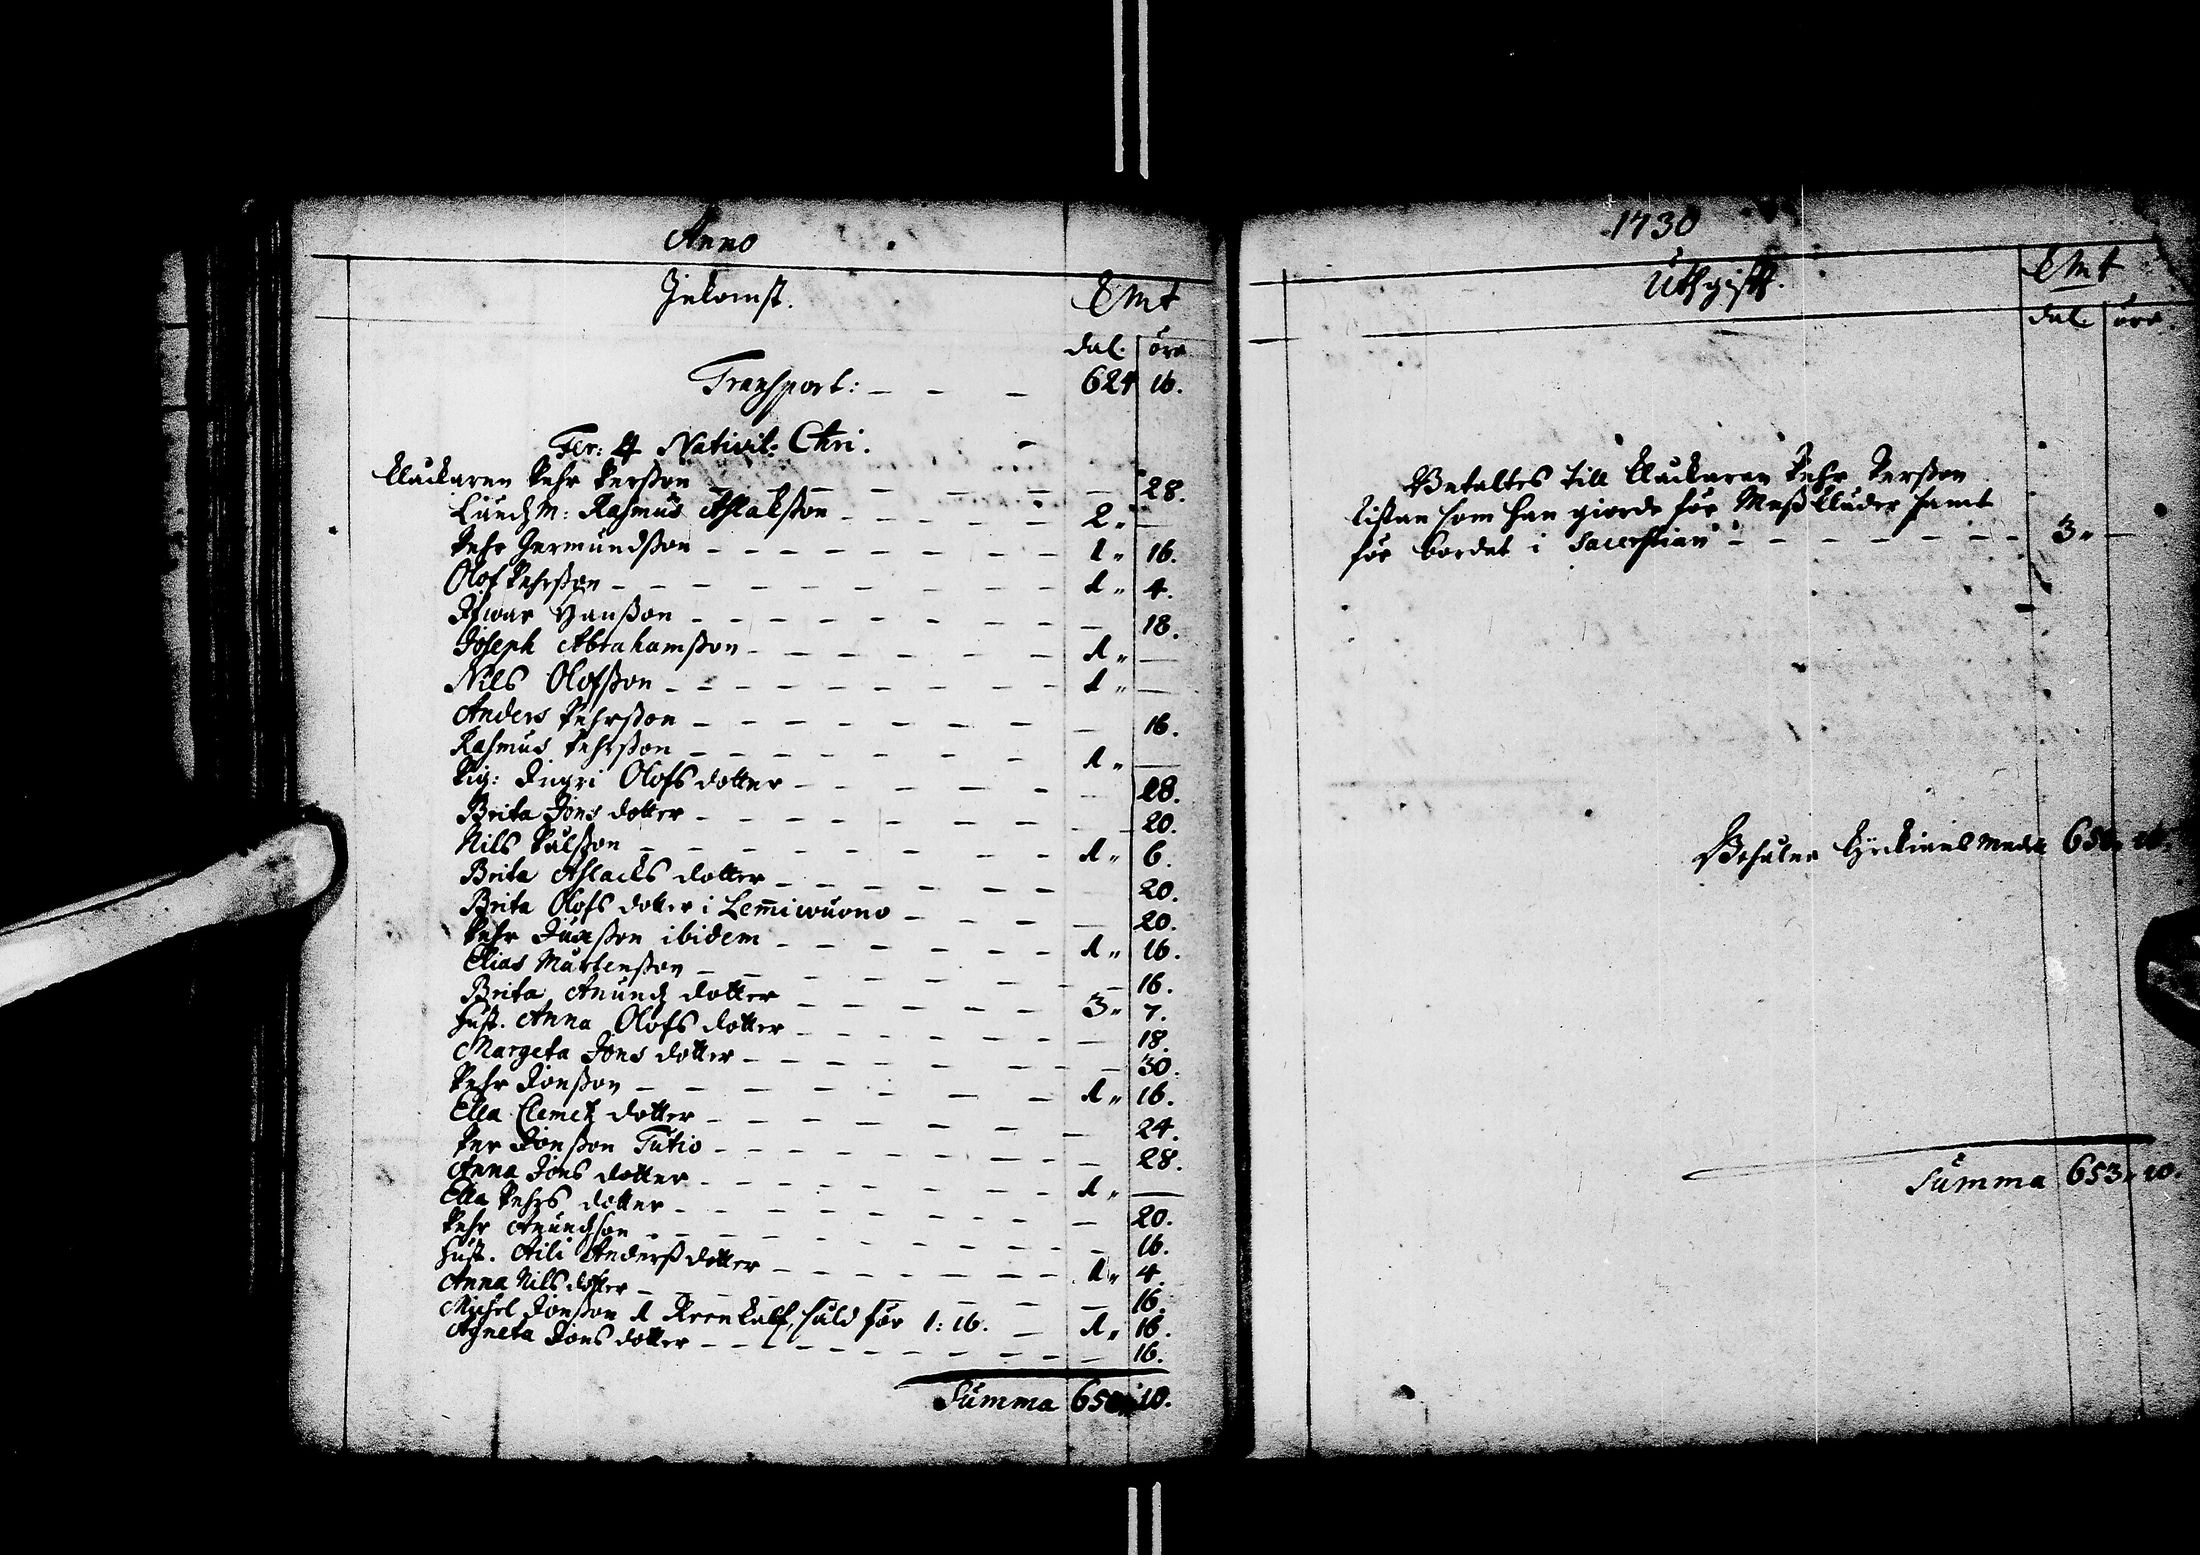 Anno
Inkomst. Kmt
dal. öre
Transport: _ _ _ 624 16.
Fer: 4 Nativit: Chri.
Klåckaren Pehr Persßon _ _ _ 28.
Rasmus Aslaksson _ _ _ 2 „ —
Pehr Germundsson _ _ _ 1 „ 16.
Olof Pehrsson _ _ _ 1 „ 4.
Ifwar Hansson _ _ _ 18.
Joseph Abrahamsson _ _ _ 1 „ —
Nils Olofsson _ _ _ 1 „ —
Anders Pehrsson _ _ _ 16.
Rasmus Pehrsson _ _ _ 1 „ —
Pig: Ingri Olofs dotter _ _ _ 28.
Brita Jons dotter _ _ _ 20.
Nils Pålsson _ _ _ 1 „ 6.
Brita Aslacks dotter _ _ _ 20.
Brita Olofs dotter i Lem̄iwuono _ _ _ 20.
Pehr ibidem _ _ _ 1 „ 16.
Elias Mårtensson _ _ _ 16.
Brita Anundz dotter _ _ _ 3 „ 7.
Hust. Anna Olofs dotter _ _ _ 18.
Margeta Jons dotter _ _ _ 30.
Pehr Jonsson _ _ _ 1 „ 16.
Ella Clemetz dotter _ _ _ 24.
Per Jonsson Tutio _ _ _ 28.
Anna Jons dotter _ _ _ 1 „ —
Ella Pehrs dotter _ _ _ 20.
Pehr Anundson _ _ _ 16.
Hust. Aili Anderß dotter _ _ _ 1 „ 4.
Anna Nils dotter _ _ _ 16.
Michel Jonsson 1 Reenkalf, såld för 1: 16. _ 1 „ 16.
Agneta Jons dotter _ _ _ 16.
Summa 650 10.
1730
Uthgifft. Kmt
dal. öre.
Betaltes till Klåckaren Pehr Persson
kistan som han giorde för Meßkläder samt
för bordet i Sacerstian _ _ _ 3 „ —
Behålne Kyrkionēs medel 650 10.
Summa 653 „ 10.